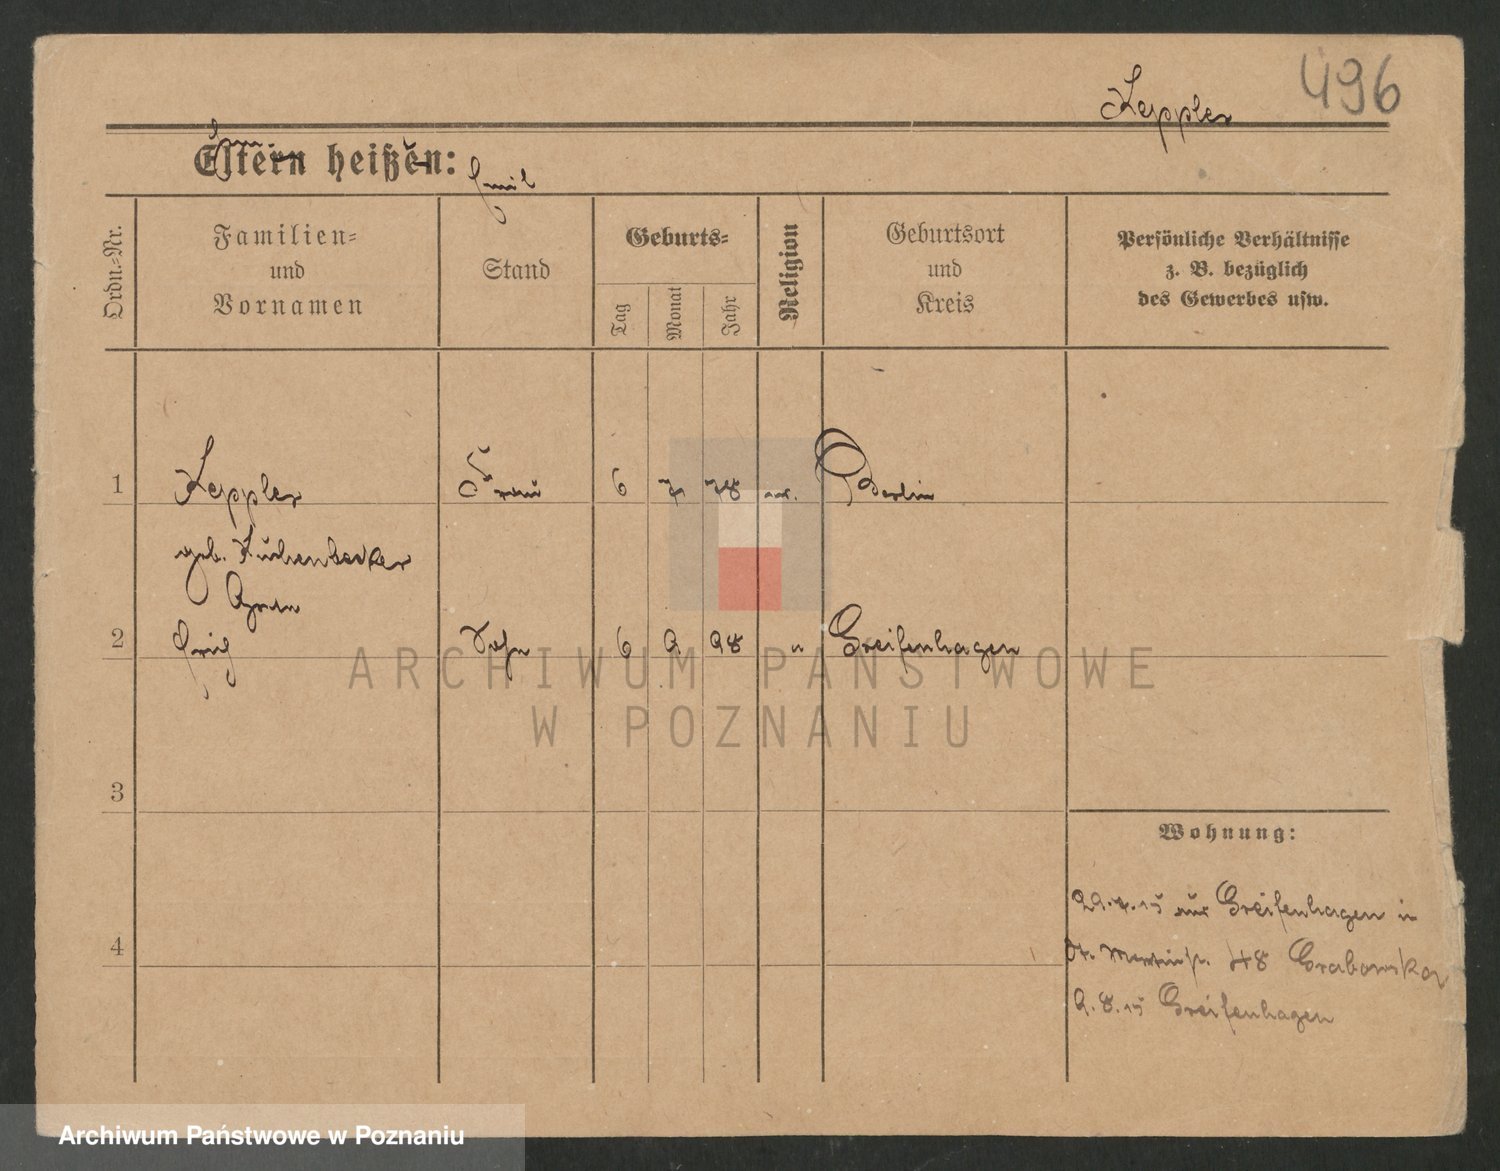 496
Keppler
Eltern heißen:
Emil
Ordn.-Nr.
Familien-
und
Vornamen
Stand
Geburts-
Tag
Monat
Jahr
Religion
Geburtsort
und
Kreis
Persönliche Verhältnisse
z. B. bezüglich
des Gewerbes usw.
1 Keppler Frau 6 7 78 ev. Berlin
geb. Kuchenbecker
2 Erich Sohn 6 9 98 " Greifenhagen
3
4
Wohnung:
aus Greifenhagen in
St. Martinstr. 48 Grabowska
9.8.15 Greifenhagen
ARCHIWUM PAŃSTWOWE
W POZNANIU
Archiwum Państwowe w Poznaniu